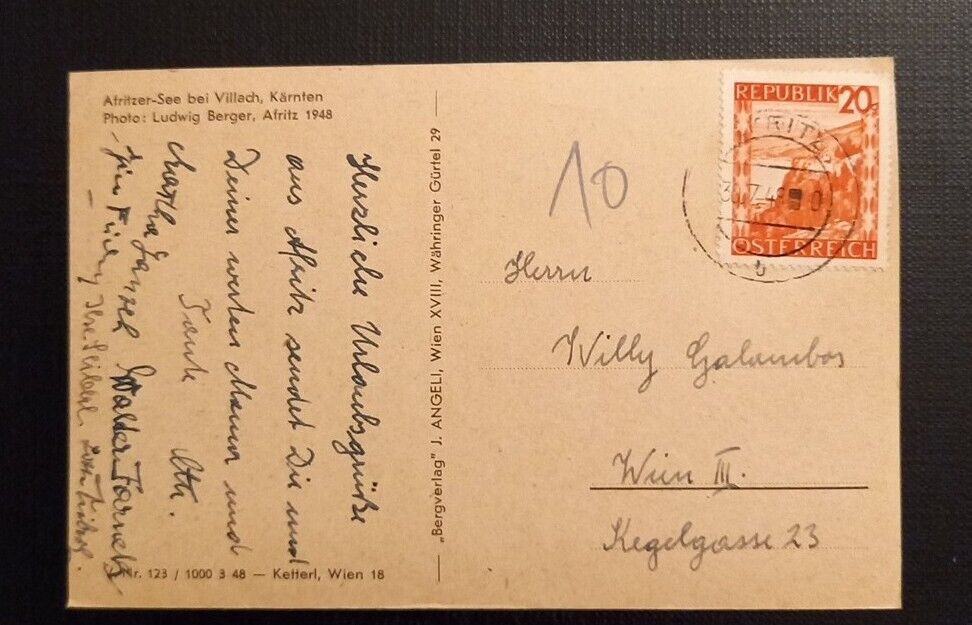 Afritzer-See bei Villach, Kärnten
Photo: Ludwig Berger, Afritz 1948
Herzliche Urlaubsgrüße
aus Afritz sendet Dir und
Deiner werten Mama und
Tante Otti.
Martha Walter
Nr. 123 / 1000 3 48 — Ketterl, Wien 18
„Bergverlag" J. ANGELI, Wien XVIII, Währinger Gürtel 29
10
REPUBLIK 20g
ÖSTERREICH
AFRITZ
Herrn
Willy Galambos
Wien III.
Kegelgasse 23